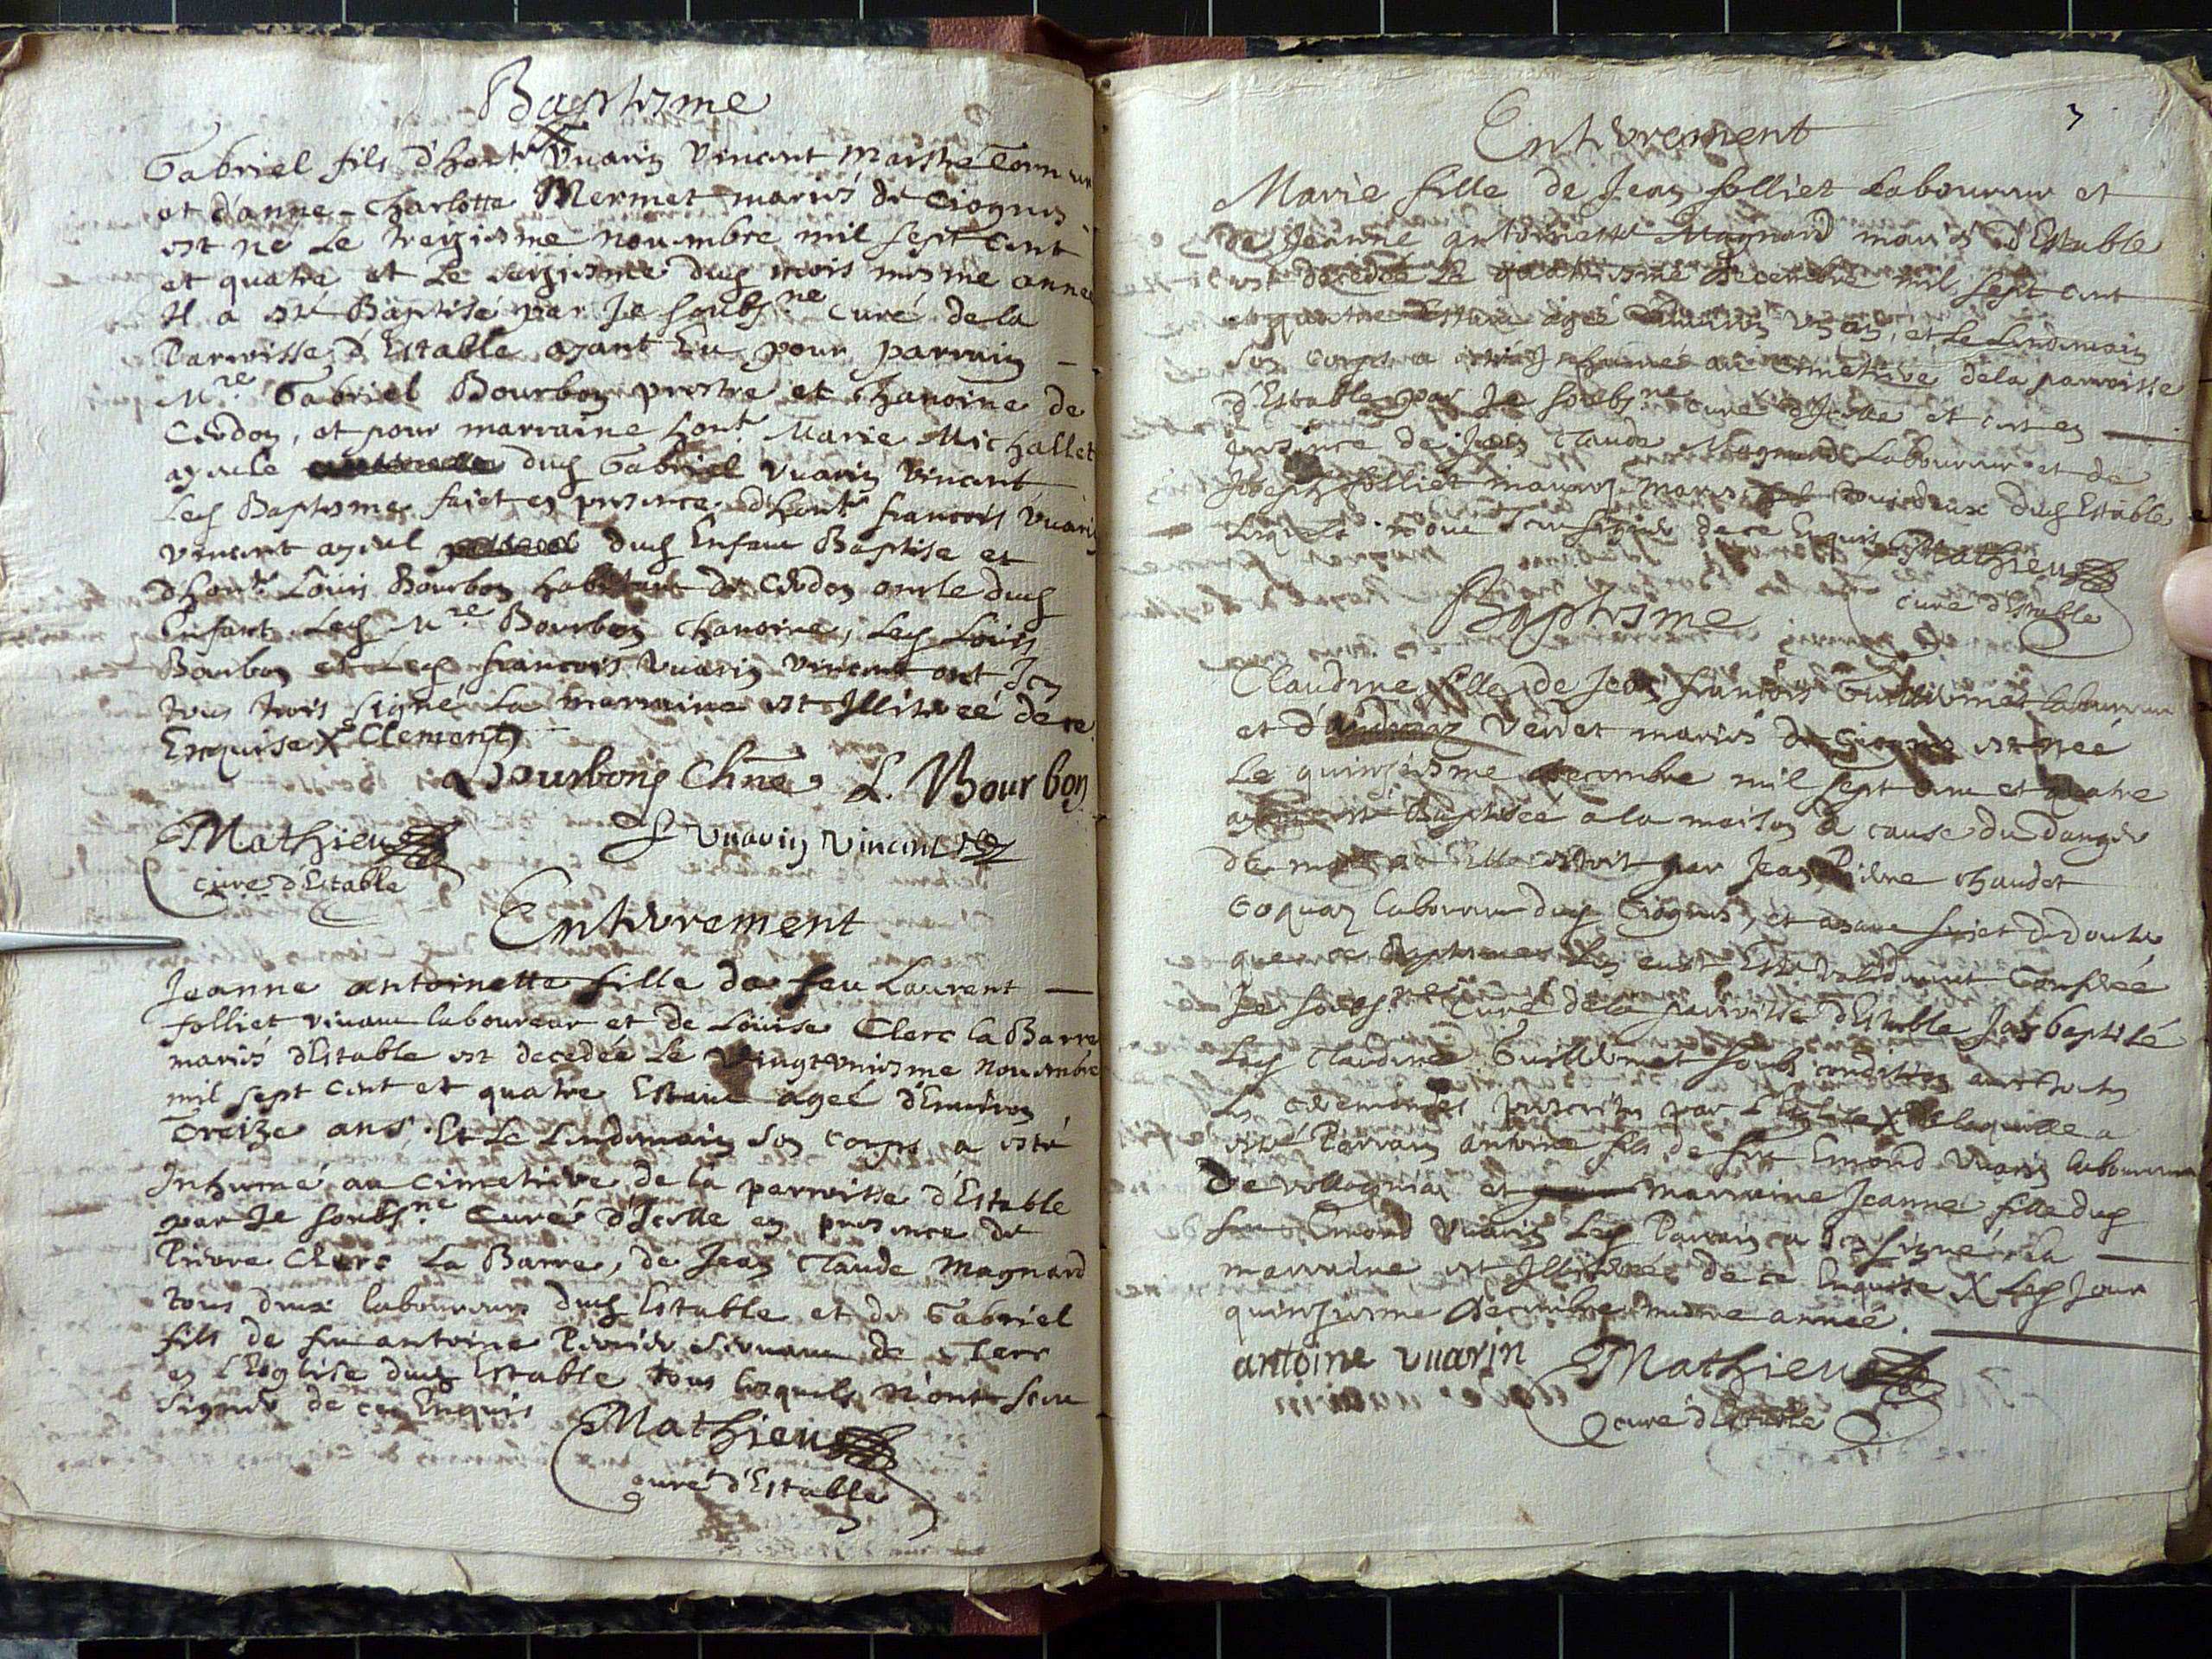 Baptesme
Gabriel fils d'hont. X Vuarin Vincent Maistre
et d'anne-Charlotte Mermet mariés de Ciognes
est né le treiziesme nouembre mil sept cent
et quatre et le seiziesme dud mois mesme année
Il a esté Baptisé par Je soubs.ne curé de la
Parroisse d'Estable ayant eu pour parrain —
M.re Gabriel Bourbon prestre et Chanoine de
Cerdon, et pour marraine hont. Marie Michallet
ayeule dud Gabriel Vuarin Vincent
Led Baptesme faict en presence d'hont. francois Vuarin
Vincent ayeul dud Enfant Baptisé et
d'hont. Loüis Bourbon habitant de Cerdon oncle dud
Enfant Led M.re Bourbon Chanoine, Led Loüis
Bourbon et Led francois Vuarin Vincent ont Icy
tous trois signé La marraine est Illiterée de ce
Enquise X Clement
Bourbon Chne. L. Bourbon
Mathieu f Vuarin Vincent
curé d'Estable
Enterrement
Jeanne antoinette fille de feu Laurent —
folliet viuant laboureur et de Loüise Clerc la Barre
mariés d'Estable est decedée Le vingtvniesme Nouembre
mil sept cent et quatre Estant agée d'Enuiron
Treize ans. Et Le Lendemain son corps a esté
Inhumé au Cimetiere de la parroisse d'Estable
par Je soubs.ne Curé d'Icelle en presence de
Pierre Clerc La Barre, de Jean Claude Magnard
tous deux laboureurs dud Estable et de Gabriel
fils de feu antoine Perrier seruant de Clerc
en l'Eglise dud Estable tous lesquels n'ont sceu
signer de ce Enquis
Mathieu
curé d'Estable
Enterrement
Marie fille de Jean folliet Laboureur et
de Jeanne antoinette Magnard mariés d'Estable
est decedée Le quatriesme decembre mil sept cent
et quatre Estant agée Enuiron vn an, et Le Lendemain
son corps a esté Inhumé au Cimetiere dela parroisse
d'Estable par Je soubs.ne curé d'Icelle et ce en —
presence de Jean Claude Magnard Laboureur et de
Joseph folliet tous deux dud Estable
Lesquels n'ont sceu signer de ce Enquis Mathieu
curé d'Estable
Baptesme
Claudine fille de Jean francois Guillermet laboureur
et d' Verdet mariés de Ciognes est née
Le quinziesme decembre mil sept cent et quatre
Baptisée a la maison a cause du danger
de mort ou Elle estoit par Jean Pierre chaudet
Coquaz laboureur dud Ciognes, et ayant sujet de doute
que ce Baptesme Luy eust Esté validement Conferé
Je soubs.ne Curé de la parroisse d'Estable Jay baptisé
Lad Claudine Guillermet soubs condition auec toutes
Les ceremonies prescrites par L'Eglise X de laquelle a
esté Parrain antoine fils de feu Emond Vuarin laboureur
De vollognia et marraine Jeanne fille dud
feu Emond Vuarin Led Parrain a Icy signé La —
marraine est Illiterée de ce Enquise X Led Jour
quinziesme decembre mesme année.
antoine vuarin Mathieu
curé d'Estable